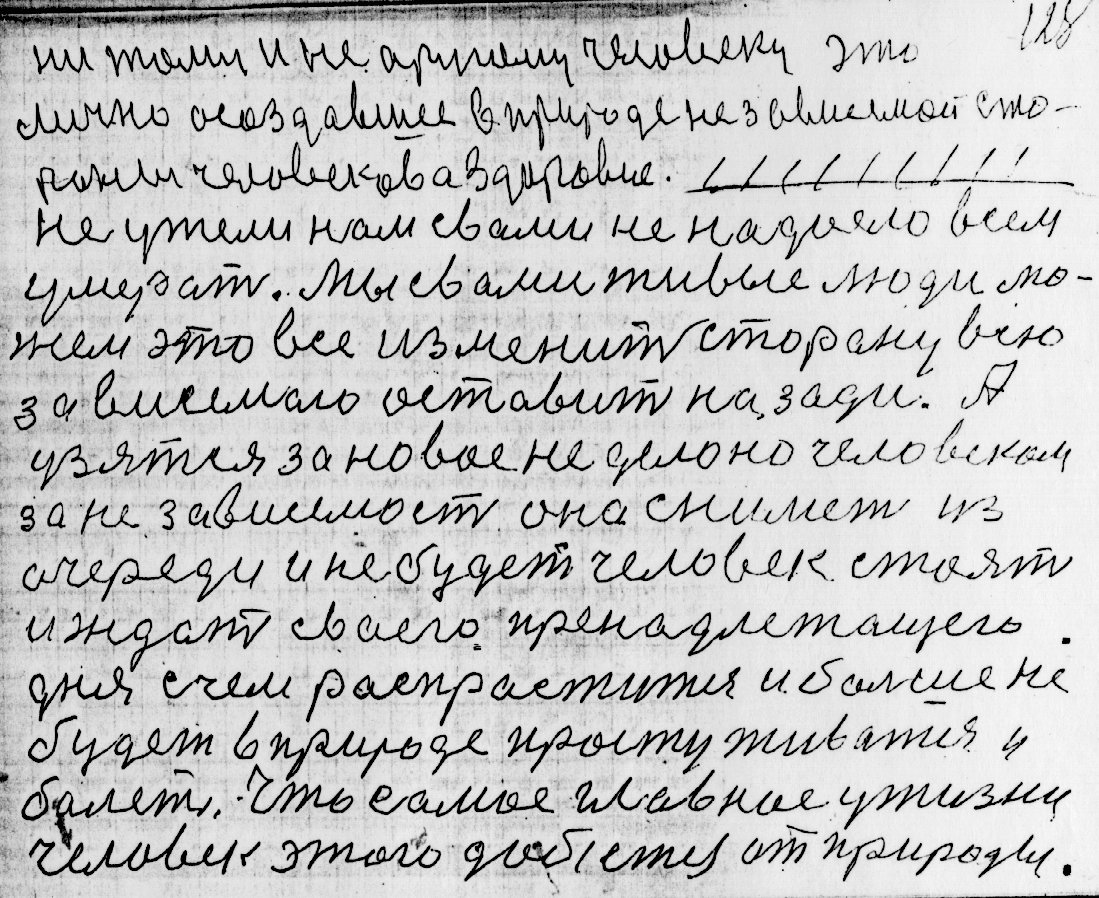 128
ни тому и не другому человеку это
лично осоздавшее в природе не зависемой сто-
роним человекова здоровие.
не ужели нам свами не надоело всем
умерат. Мы свами живые люди мо-
жем это все изменит сторану всю
зависемаю оставит на зади. А
узятся за новое не делоно человеком
за не зависемост она снимет из
очереди и не будет человек стоят
и ждат сваего пренадлежащего.
дня с чем распраститя и болше не
будет в природе простуживатя и
балет. Что самое главное у жизни
человек этого добется от природы.